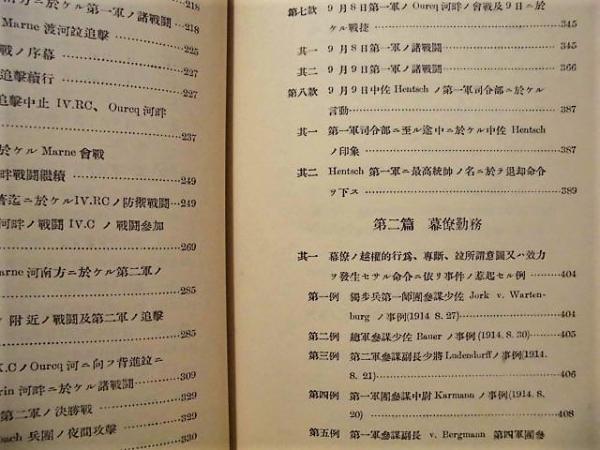 南方ニ於ケル第一軍ノ諸戰鬪
218
Marne 渡河竝追擊
225
戰ノ序幕
227
追擊續行
227
追擊中止 IV.RC、Ourcq 河畔
237
於ケル Marne 會戰
畔戰鬪繼續
249
ニ於ケル IV.RC ノ防禦戰鬪 249
河畔ノ戰鬪 IV.C ノ戰鬪參加
269
arne 河南方ニ於ケル第二軍ノ
285
附近ノ戰鬪及第二軍ノ追擊
285
X.C ノ Ourcq 河ニ向フ背進竝ニ
rin 河畔ニ於ケル諸戰鬪
309
第二軍ノ決勝戰
329
bach 兵團ノ夜間攻擊
330
第七款 9月8日第一軍ノ Ourcq 河畔ノ會戰及9日ニ於
ケル戰捷 345
其一 9月8日第一軍ノ諸戰鬪 345
其二 9月9日第一軍ノ諸戰鬪 366
第八款 9月9日中佐 Hentsch ノ第一軍司令部ニ於ケル
言動 387
其一 第一軍司令部ニ至ル途中ニ於ケル中佐 Hentsch
ノ印象 387
其二 Hentsch 第一軍ニ最高統帥ノ名ニ於テ退却命令
ヲ下ス 389
第二篇 幕僚勤務
其一 幕僚ノ越權的行爲、專斷、竝所謂意圖又ハ效力
ヲ發生セサル命令ニ依リ事件ノ惹起セル例 404
第一例 獨步兵第一師團參謀少佐 Jork v. Warten-
burg ノ事例(1914. 8. 27) 404
第二例 總軍參謀少佐 Bauer ノ事例(1914. 8. 30) 405
第三例 第二軍參謀副長少將 Ludendorff ノ事例(1914.
8. 21) 406
第四例 第一軍團參謀中尉 Karmann ノ事例(1914. 8.
20) 408
第五例 第一軍參謀副長 v. Bergmann 第四軍團參